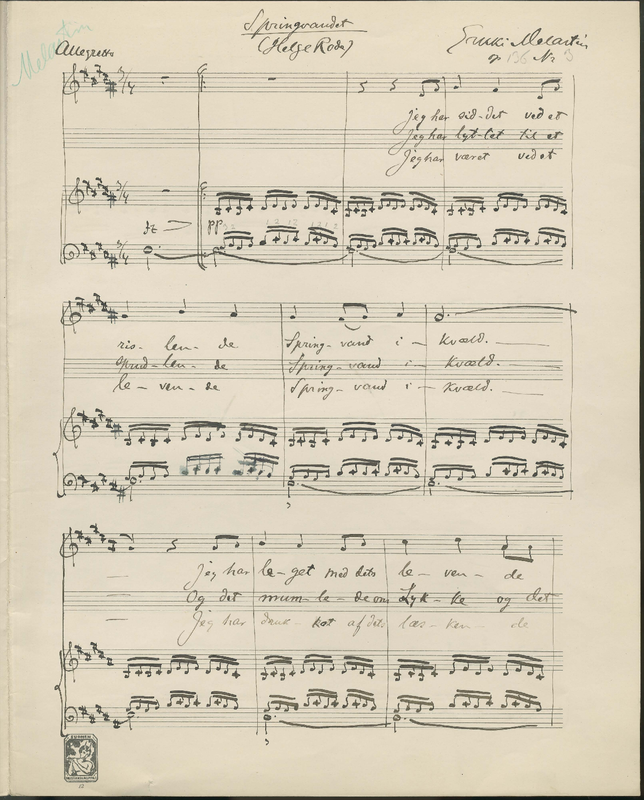 Springvandet
(Helge Rode)
Erkki Melartin
op 136 Nr 3
Melartin
Allegretto
3/4
3/4
fz
pp
3/4
Jeg har sid-det ved et
Jeg har lyt-tet til et
Jeg har været ved et
ris-len-de Spring-vand i - Kvæld.
sprud-len-de Spring-vand i - Kvæld.
le-ven-de Spring-vand i - Kvæld.
Jeg har le-get med dets le-ven-de
Og det mum-le-de om Lyk-ke og det
Jeg har druk-ket af dets læs-ken-de
12